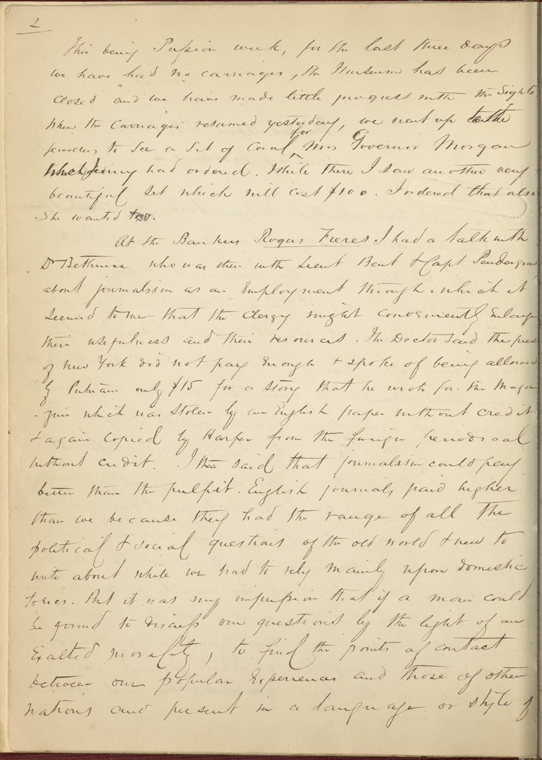 2
This being Passion week, for the last three days
we have had no carriages, the Museum has been
closed and we have made little progress with the Sights
When the Carriages resumed yesterday, we went up to the
jewelers to see a Set of Coral for Mrs Governor Morgan
which Jenny had ordered. While there I saw another very
beautiful set which will cost $100. I ordered that also
She wanted two.
At the Bankers Rogers Freres I had a talk with
Dr Bethune who was there with Lieut Bent & Capt Pendergrast
about journalism as an Employment through which it
seemed to me that the Clergy might conveniently Enlarge
their usefulness and their resources. The Doctor said the press
of New York did not pay Enough & spoke of being allowed
by Putnam only $15 for a story that he wrote for the Maga
-zine which was stolen by an English paper without credit
& again copied by Harper from the foreign periodical
without credit. I then said that journalism could pay
better than the pulpit. English journals paid higher
than we because they had the range of all the
political & social questions of the old world & new to
write about while we had to rely mainly upon domestic
topics. But it was my impression that if a man could
be found to discuss our questions by the light of an
Exalted morality, to find the points of contact
between our popular Experiences and those of other
nations and present in a language or style of